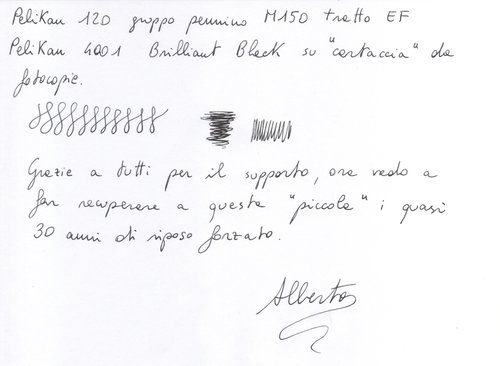 Pelikan 120 gruppo pennino M150 tratto EF
Pelikan 4001 Brilliant Black su "cartaccia" da
fotocopie.
Grazie a tutti per il supporto, ora vedo a
far recuperare a questa "piccola" i quasi
30 anni di riposo forzato.
Alberto